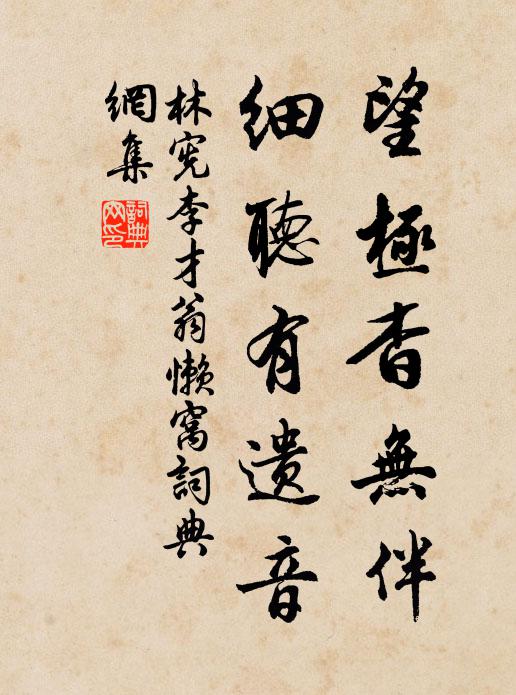 望極杳無伴
細聽有遺音
林宪李才翁懒窩詞典
網集
詞典
网印